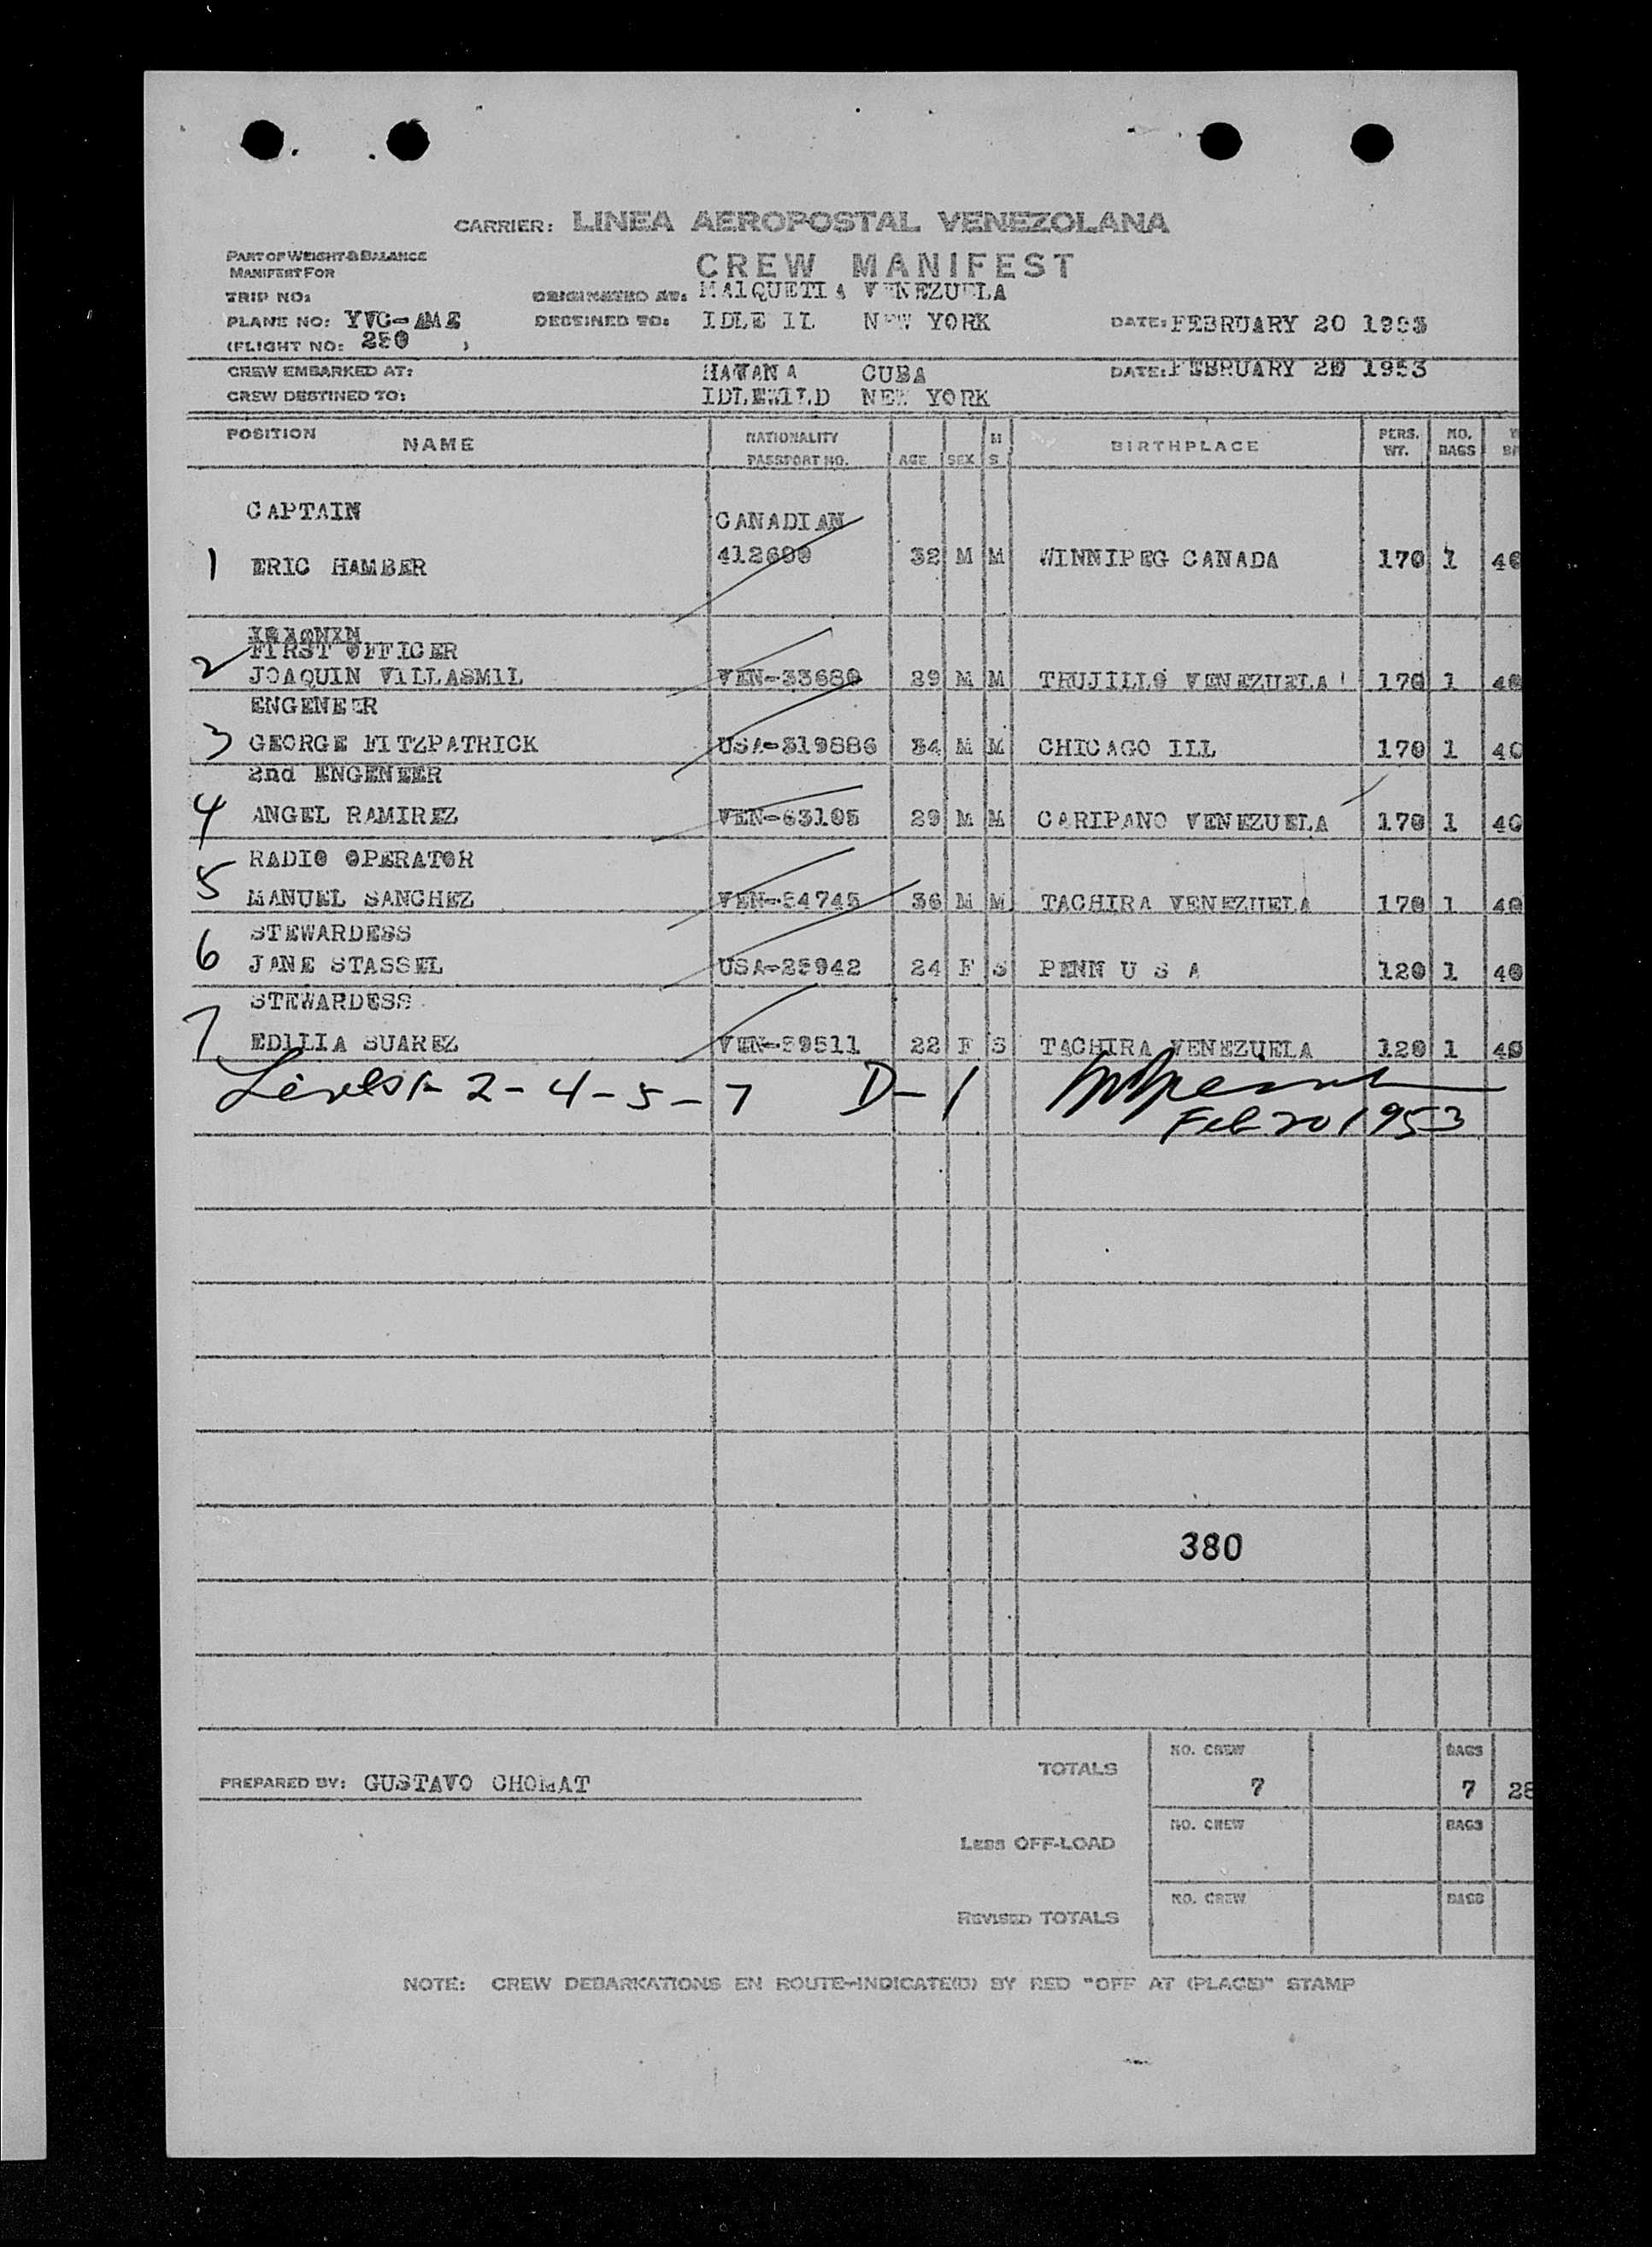 CARRIER: LINEA AEROPOSTAL VENEZOLANA
PART OF WEIGHT & BALANCE
MANIFEST FOR
CREW MANIFEST
TRIP NO:
ORIGINATED AT: MAIQUETIA VENEZUELA
PLANE NO: YVC-AME
DESTINED TO: IDLE IL NEW YORK
DATE: FEBRUARY 20 1953
(FLIGHT NO: 250 )
CREW EMBARKED AT: HAVANA CUBA
DATE: FEBRUARY 20 1953
CREW DESTINED TO: IDLEWILD NEW YORK
POSITION NAME NATIONALITY PASSPORT NO. AGE SEX M S BIRTHPLACE PERS. WT. NO. BAGS
CAPTAIN CANADIAN
1 ERIC HAMBER 412600 32 M M WINNIPEG CANADA 170 1 40
FIRST OFFICER
2 JOAQUIN VILLASMIL VEN-33680 29 M M TRUJILLO VENEZUELA 170 1 40
ENGENEER
3 GEORGE FITZPATRICK USA-319886 34 M M CHICAGO ILL 170 1 40
2nd ENGENEER
4 ANGEL RAMIREZ VEN-63105 29 M M CARIPANO VENEZUELA 170 1 40
RADIO OPERATOR
5 MANUEL SANCHEZ VEN-54745 36 M M TACHIRA VENEZUELA 170 1 40
STEWARDESS
6 JANE STASSEL USA-25942 24 F S PENN U S A 120 1 40
STEWARDESS
7 EDILIA SUAREZ VEN-59511 22 F S TACHIRA VENEZUELA 120 1 40
Lines 1-2-4-5-7 D-1
Feb 20 1953
380
PREPARED BY: GUSTAVO CHOMAT
TOTALS NO. CREW 7 BAGS 7 28
LESS OFF-LOAD NO. CREW BAGS
REVISED TOTALS NO. CREW BAGS
NOTE: CREW DEBARKATIONS EN ROUTE-INDICATE(D) BY RED "OFF AT (PLACE)" STAMP